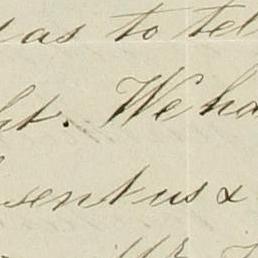 as to tel
ht. We ha
sent us &